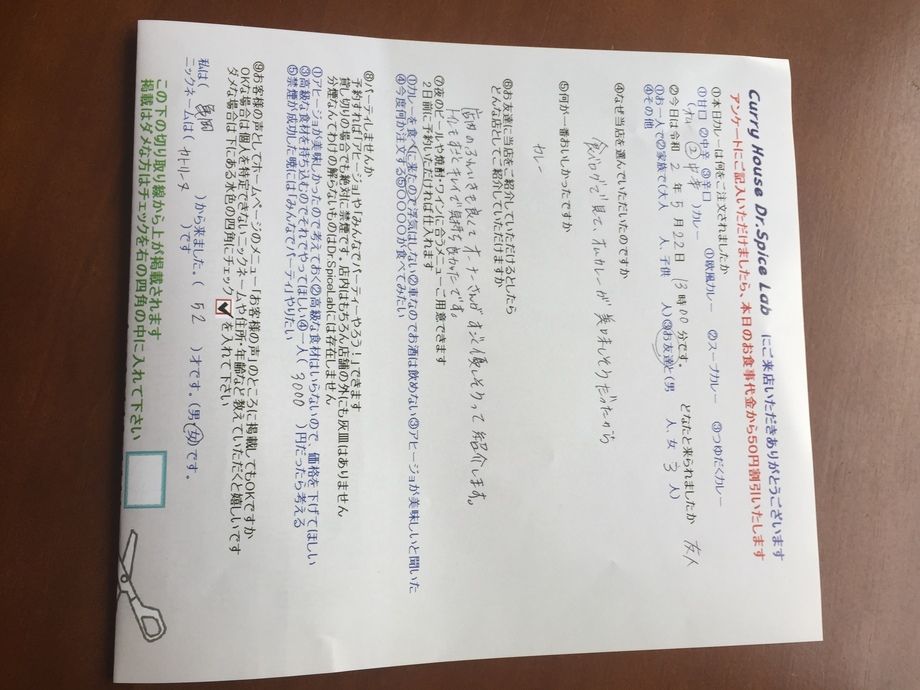 Curry House Dr.Spice Lab にご来店いただきありがとうございます
アンケートにご記入いただけましたら、本日のお食事代金から50円割引いたします
①本日カレーは何をご注文されましたか
( ② 中辛 )カレー ①欧風カレー ②スープカレー ③つゆだくカレー
①甘口 ②中辛 ③辛口
②今日は令和 2 年 5 月 22 日 13 時 00 分です。 どなたと来られましたか 友人
①お一人で②家族で(大人 人、子供 人)③お友達と(男 人、女 3 人)
④その他
④なぜ当店を選んでいただいたのですか
食べログで見て、カレーが美味しそうだったから
⑤何が一番おいしかったですか
カレー
⑥お友達に当店をご紹介していただけるとしたら
どんな店としてご紹介していただけますか
店内のふんいきも良くてオーナーさんがすごく優しそうって紹介します。
トイレもすごくキレイで気持ち良かったです。
⑦夜のビールや焼酎・ワインに合うメニューご用意できます
2日前に予約いただければ仕入れます
①カレーを食べに来たので浮気はしない②車なのでお酒は飲めない③アヒージョが美味しいと聞いた
④今度何か注文する⑤〇〇〇〇が食べてみたい
⑧パーティしませんか
予約すれば「アヒージョ」や「みんなでパーティーやろう!」できます
貸し切りの場合でも絶対に禁煙です。店内はもちろん店舗の外にも灰皿はありません
分煙なんてわけの解らないものはDr.SpiceLabには存在しません
①アヒージョが美味しかったので考えておく②高級な食材はいらないので、価格を下げてほしい
③高級な食材を持ち込むのでそれでやってほしい④一人( 3000 )円だったら考える
⑤禁煙が成功した暁にはみんなでパーティやりたい
⑨お客様の声としてホームページのメニュー「お客様の声」のところに掲載してもOKですか
OKな場合は個人を特定できないニックネームや住所・年齢など教えていただくと嬉しいです
ダメな場合は下にある水色の四角にチェック を入れて下さい
私は( )から来ました。( 52 )才です。(男・女)です。
ニックネームは( カトリーヌ )です
この下の切り取り線から上が掲載されます
掲載はダメな方はチェックを右の四角の中に入れて下さい